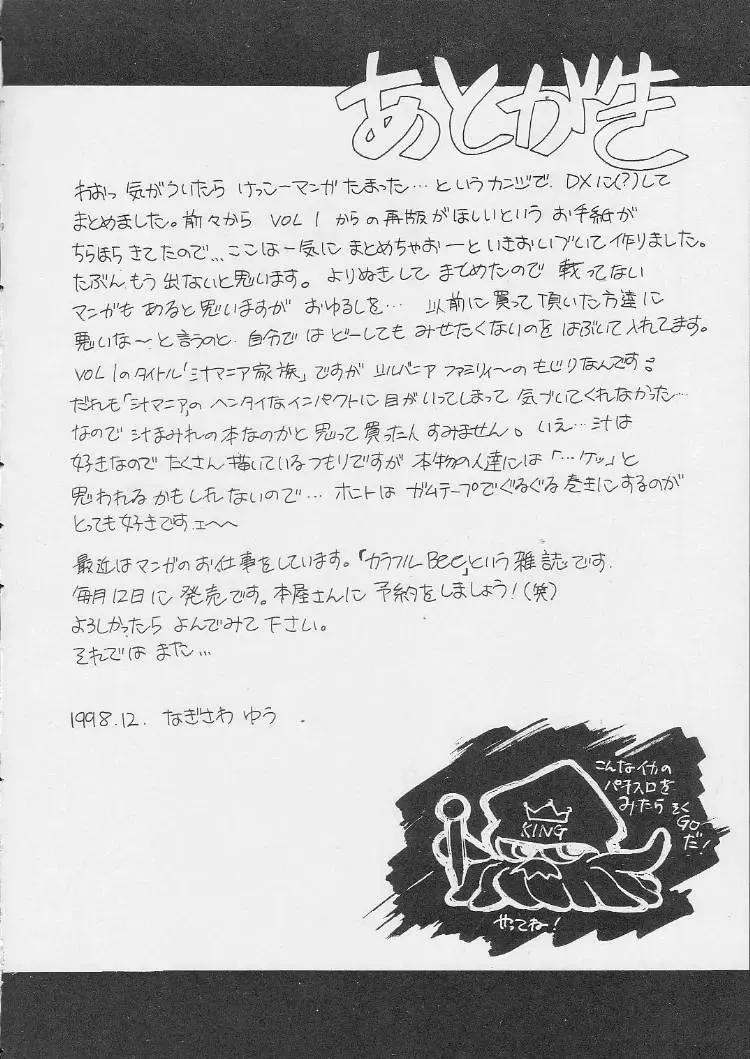 あとがき
わおっ 気がついたら けっこーマンガ たまった…というカンジで、DXに(?)して
まとめました。前々から VOL 1 からの再版がほしいという お手紙が
ちらほら きてたので…ここは一気に まとめちゃおーといきおいづいて作りました。
たぶん、もう 出ないと思います。よりぬきして まとめたので 載ってない
マンガも あると思いますが おゆるしを… 以前に買って頂いた方達に
悪いな〜と言うのと、自分では どーしても みせたくないのを はぶいて入れてます。
VOL 1のタイトル「汁マニア家族」ですが シルバニア ファミリィ〜の もじりなんです。
だれも「汁マニア」の ヘンタイなインパクトに目がいってしまって 気づいてくれなかった…
なので 汁まみれの本なのかと思って買った人 すみません。いえ…汁は
好きなので たくさん描いているつもりですが 本物の人達には「…ケッ」と
思われる かもしれないので… ホントは ガムテープでぐるぐる巻きにするのが
とっても好きですェ〜〜
最近はマンガのお仕事をしています。「カラフルBee」という雑誌です。
毎月12日に 発売です。本屋さんに 予約をしましょう!(笑)
よろしかったら よんでみて下さい。
それでは また…
1998.12. なぎさわ ゆう .
こんなイカの
パチスロを
みたら そく
GO
だ!
KING
やってね!